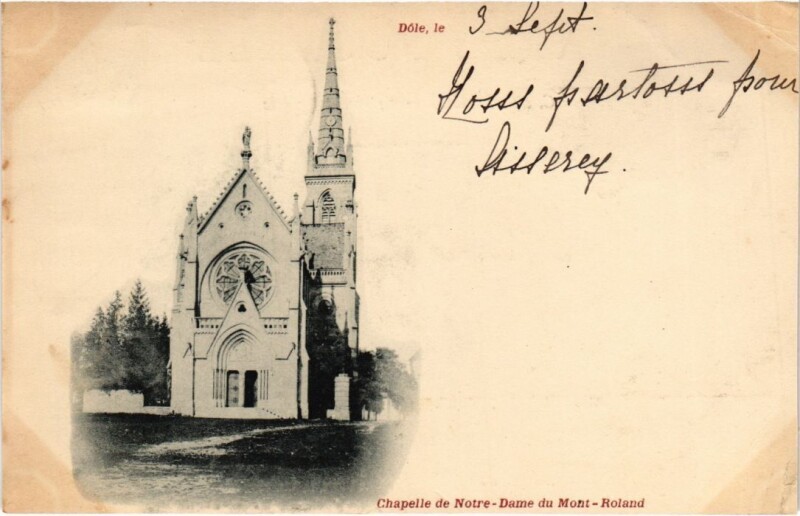 Dôle, le 3 Sept.
Nous partons pour
Lisserey.
Chapelle de Notre-Dame du Mont-Roland